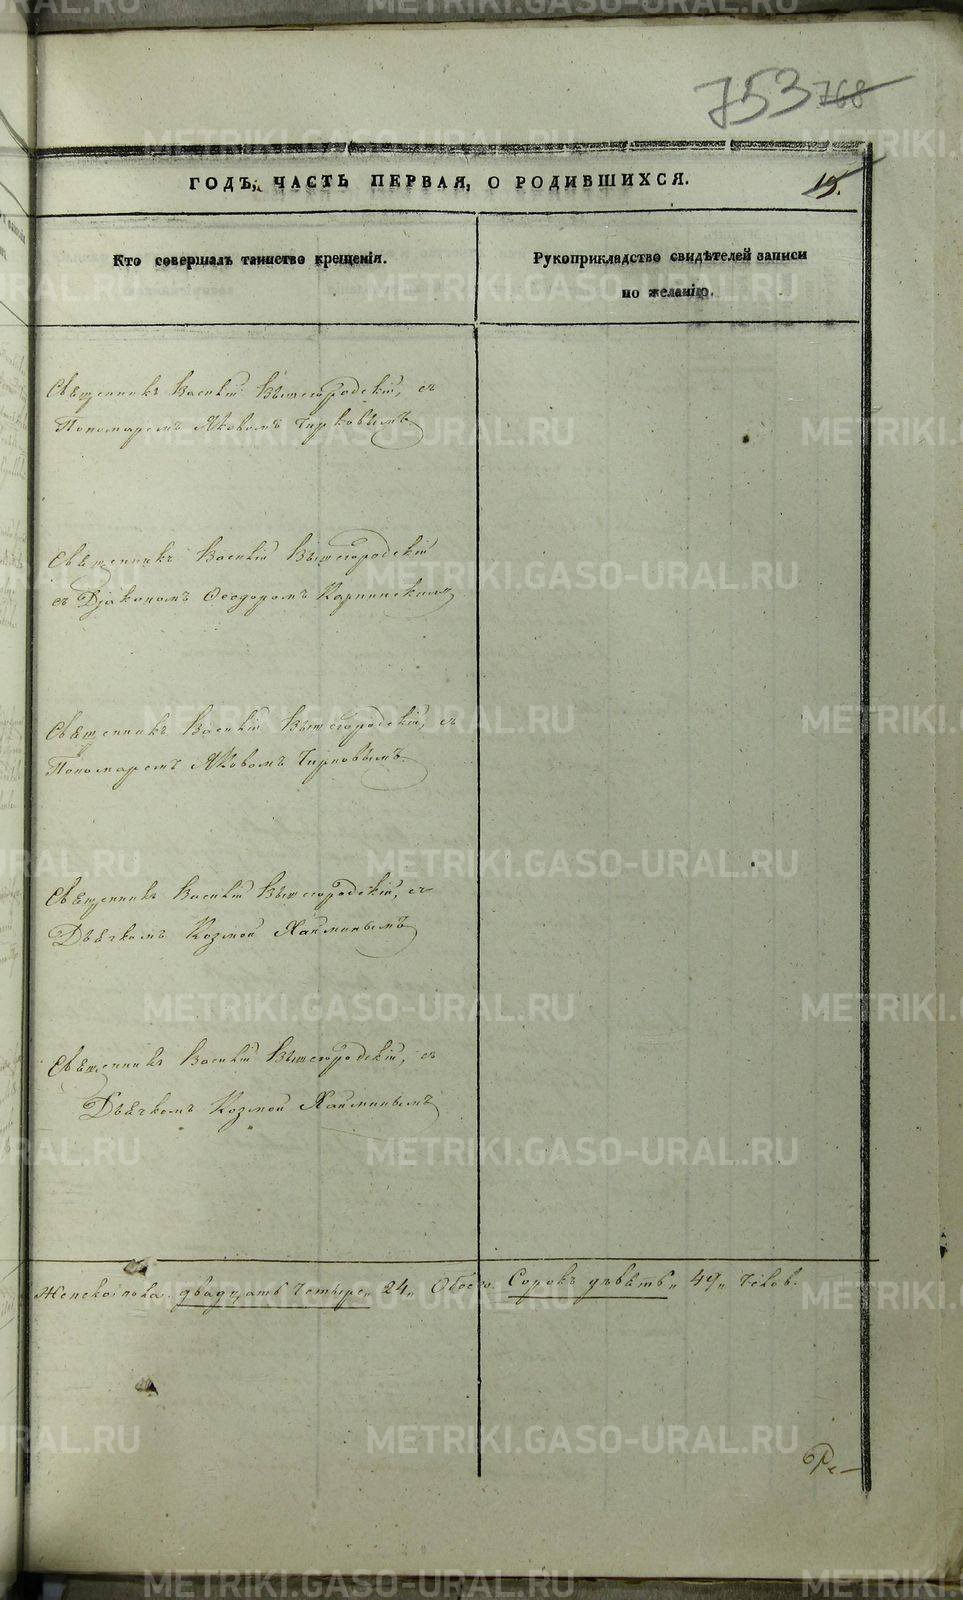 753 768
ГОДЪ, ЧАСТЬ ПЕРВАЯ, О РОДИВШИХСЯ.
19.
Кто совершалъ таинство крещенія.
Рукоприкладство свидѣтелей записи
по желанію.
Священникъ Василій Вышегородскій, съ
Пономаремъ Яковомъ Чирковымъ
Священникъ Василій Вышегородскій
съ Діакономъ Ѳеодоромъ Карпинскимъ
Священникъ Василій Вышегородскій, съ
Пономаремъ Яковомъ Чирковымъ
Священникъ Василій Вышегородскій, съ
Дьячкомъ Козмой Хайминымъ
Священникъ Василій Вышегородскій, съ
Дьячкомъ Козмой Хайминымъ
Женскаго пола двадцать четыре „ 24 „ Обоего Сорокъ девять „ 49 „ Челов.
METRIKI.GASO-URAL.RU